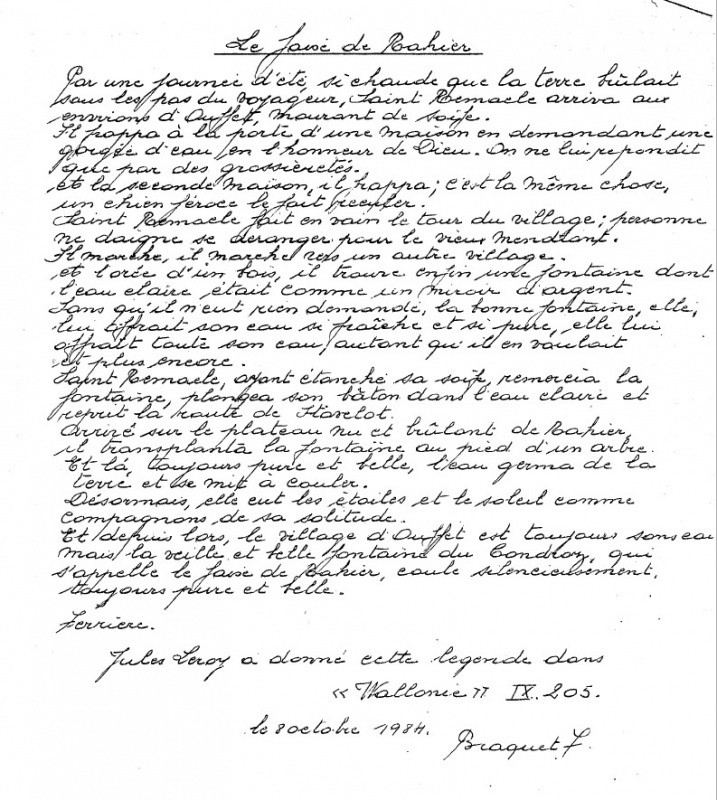 Le Faixe de Rahier
Par une journée d'été, si chaude que la terre brûlait
sous les pas du voyageur, Saint Remacle arriva aux
environs d'Ouffet, mourant de soife.
Il frappa à la porte d'une maison en demandant une
gorgée d'eau, en l'honneur de Dieu. On ne lui repondit
que par des grossièretés.
et la seconde maison, it happa; c'est la même chose,
un chien féroce le fait reculer.
Saint Remacle fait en vain le tour du village; personne
ne daigne se deranger pour le vieux mendiant.
Il marche, il marche vers un autre village.
et l'orée d'un bois, il trouve enfin une fontaine dont
l'eau claire était comme un miroir d'argent.
Sans qu'il n'eut rien demandé, la bonne fontaine, elle,
lui offrait son eau si fraîche et si pure, elle lui
offraît toute son eau, autant qu'il en voulait
et plus encore.
Saint Remacle, ayant étanché sa soife, remercia la
fontaine, plongea son bâton dans l'eau claire et
reprit la route de Stavelot.
Arrivé sur le plateau nu et brûlant de Rahier,
il transplanta la fontaine au pied d'un arbre.
Et là, toujours pure et belle, l'eau germa de la
terre et se mit à couler.
Désormais, elle eut les étoiles et le soleil comme
compagnons de sa solitude.
Et depuis lors, le village d'Ouffet est toujours sons eau
mais la veille et belle fontaine du Condroz, qui
s'appelle le Faixe de Rahier, coule silencieusement,
toujours pure et belle.
Ferriere.
Jules Leroy a donné cette legende dans
« Wallonie » IX. 205.
le 8 octobre 1984.
Braquet F.